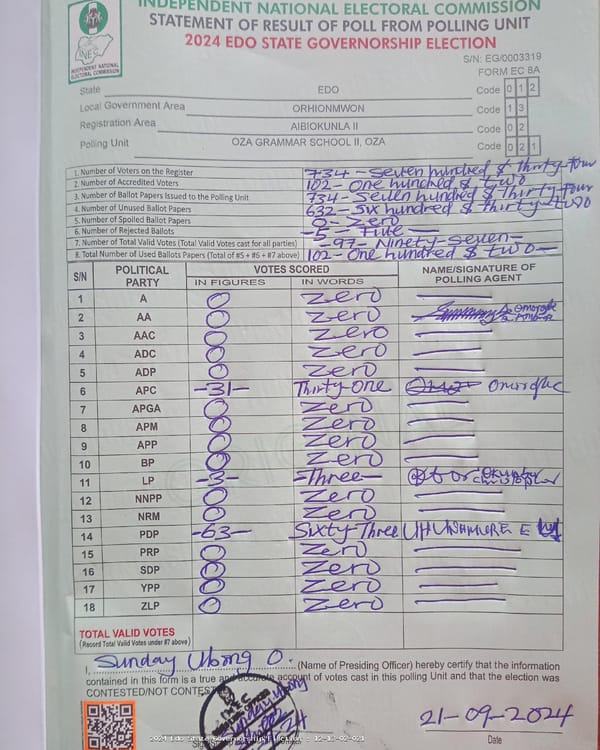 INDEPENDENT NATIONAL ELECTORAL COMMISSION
STATEMENT OF RESULT OF POLL FROM POLLING UNIT
2024 EDO STATE GOVERNORSHIP ELECTION
INEC
INDEPENDENT NATIONAL ELECTORAL COMMISSION
S/N: EG/0003319
FORM EC 8A
State EDO Code 0 1 2
Local Government Area ORHIONMWON Code 1 3
Registration Area AIBIOKUNLA II Code 0 2
Polling Unit OZA GRAMMAR SCHOOL II, OZA Code 0 2 1
1. Number of Voters on the Register 734 - Seven hundred & thirty four
2. Number of Accredited Voters 102 - One hundred & two
3. Number of Ballot Papers Issued to the Polling Unit 734 - Seven hundred & thirty four
4. Number of Unused Ballot Papers 632 - Six hundred & thirty-two
5. Number of Spoiled Ballot Papers 0 - Zero
6. Number of Rejected Ballots -5 - Five -
7. Number of Total Valid Votes (Total Valid Votes cast for all parties) -97- Ninety-seven-
8. Total Number of Used Ballots Papers (Total of #5 + #6 + #7 above) 102 - One hundred & two -
S/N POLITICAL PARTY VOTES SCORED NAME/SIGNATURE OF POLLING AGENT
IN FIGURES IN WORDS
1 A 0 Zero
2 AA 0 Zero
3 AAC 0 Zero
4 ADC 0 Zero
5 ADP 0 Zero
6 APC -31- Thirty one
7 APGA 0 Zero
8 APM 0 Zero
9 APP 0 Zero
10 BP 0 Zero
11 LP -3- -Three-
12 NNPP 0 Zero
13 NRM 0 Zero
14 PDP -63- Sixty Three
15 PRP 0 Zero
16 SDP 0 Zero
17 YPP 0 Zero
18 ZLP 0 Zero
TOTAL VALID VOTES
(Record Total Valid Votes under #7 above)
I, Sunday Ubong O. (Name of Presiding Officer) hereby certify that the information
contained in this form is a true and accurate account of votes cast in this polling Unit and that the election was
CONTESTED/NOT CONTES
21-09-2024
Date
2024 Edo State Governorship Election - 12-13-02-021